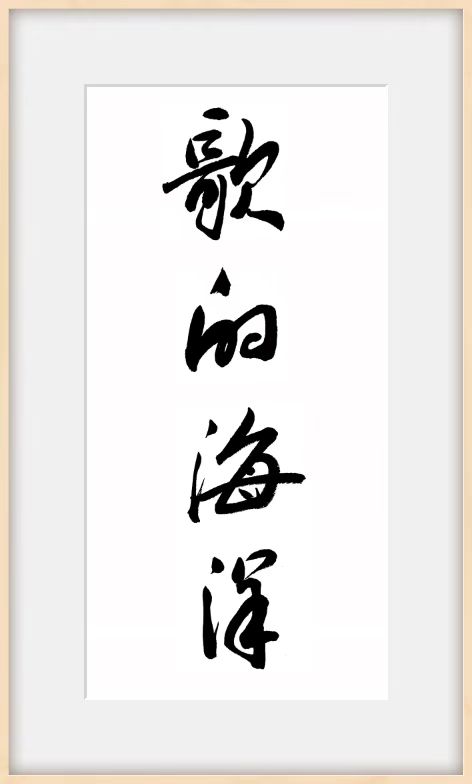 歌的海洋